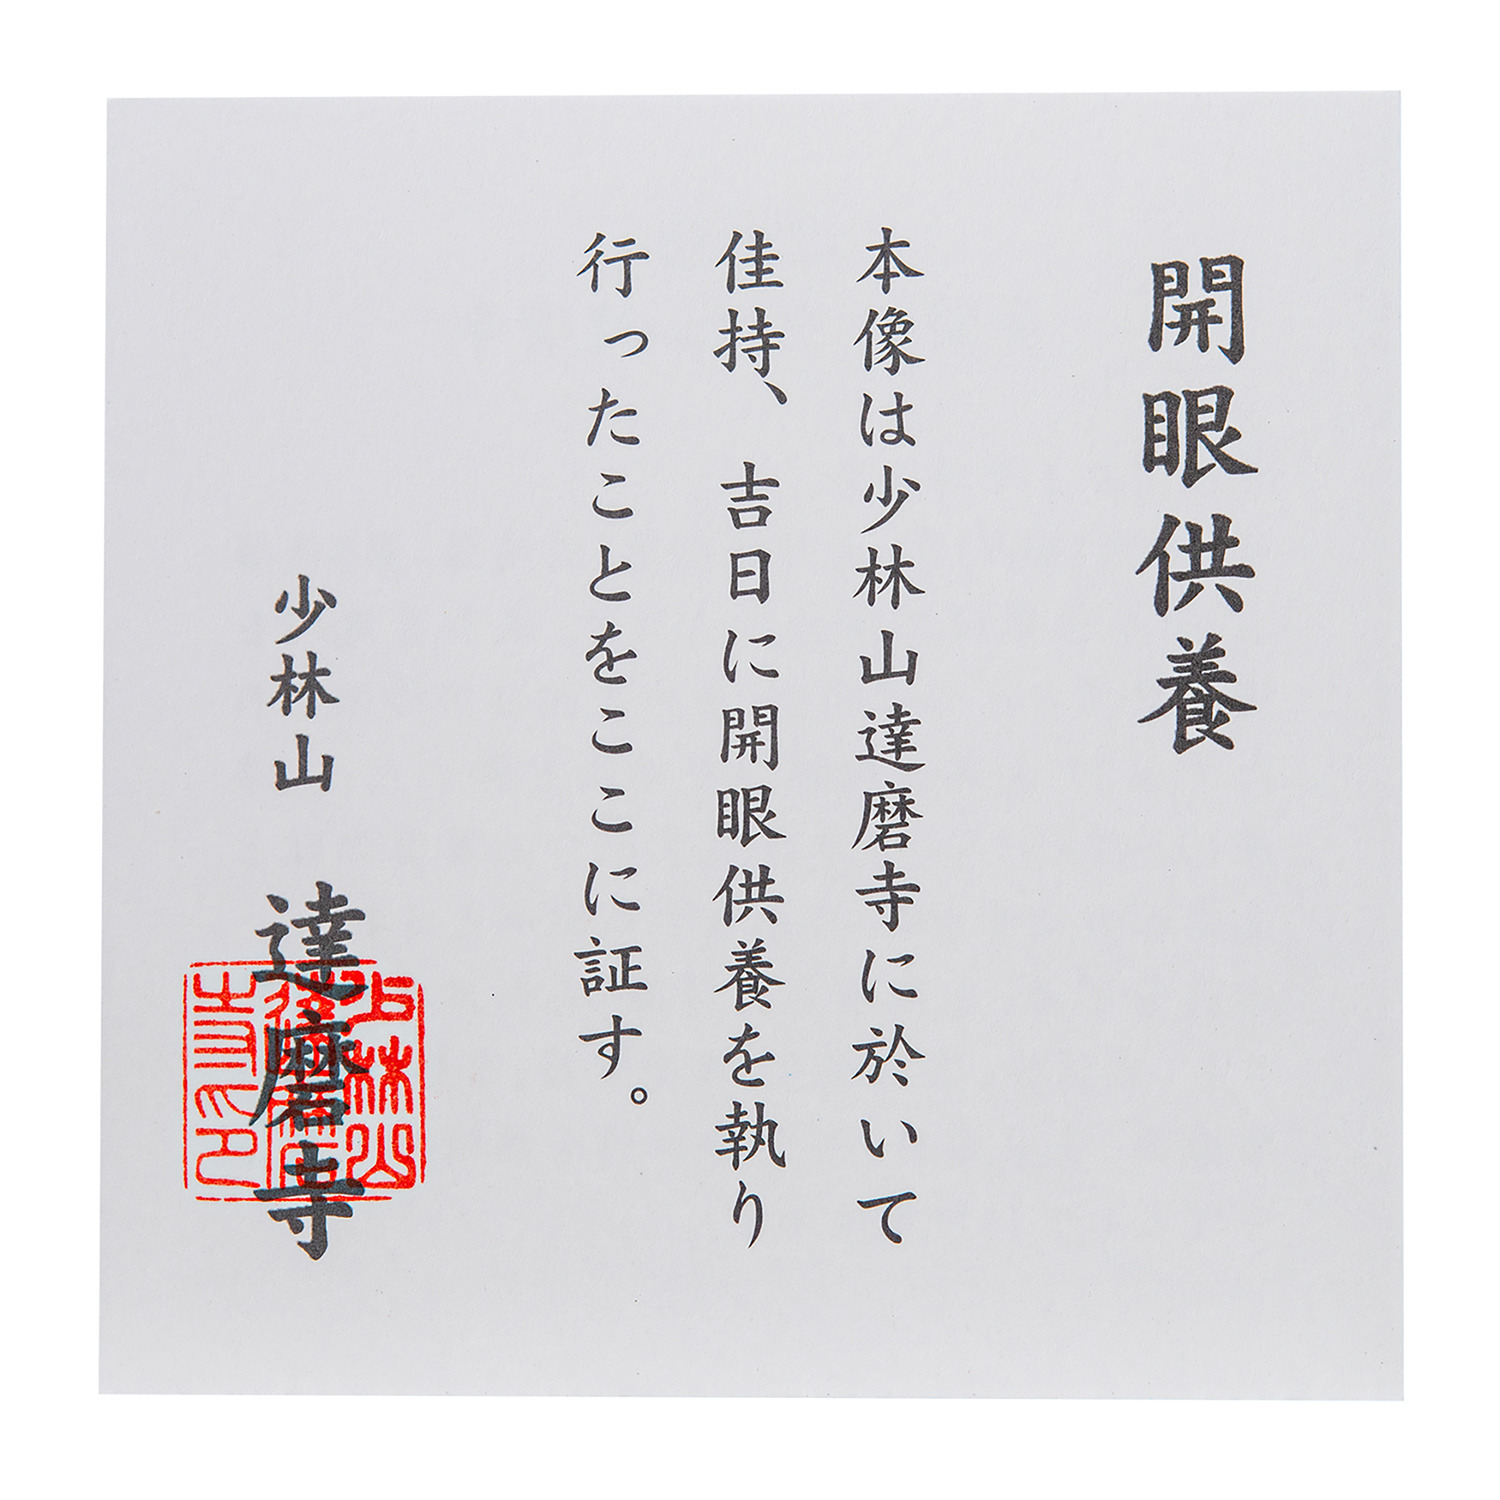 開眼供養
本像は少林山達磨寺に於いて
佳持、吉日に開眼供養を執り
行ったことをここに証す。
少林山 達磨寺